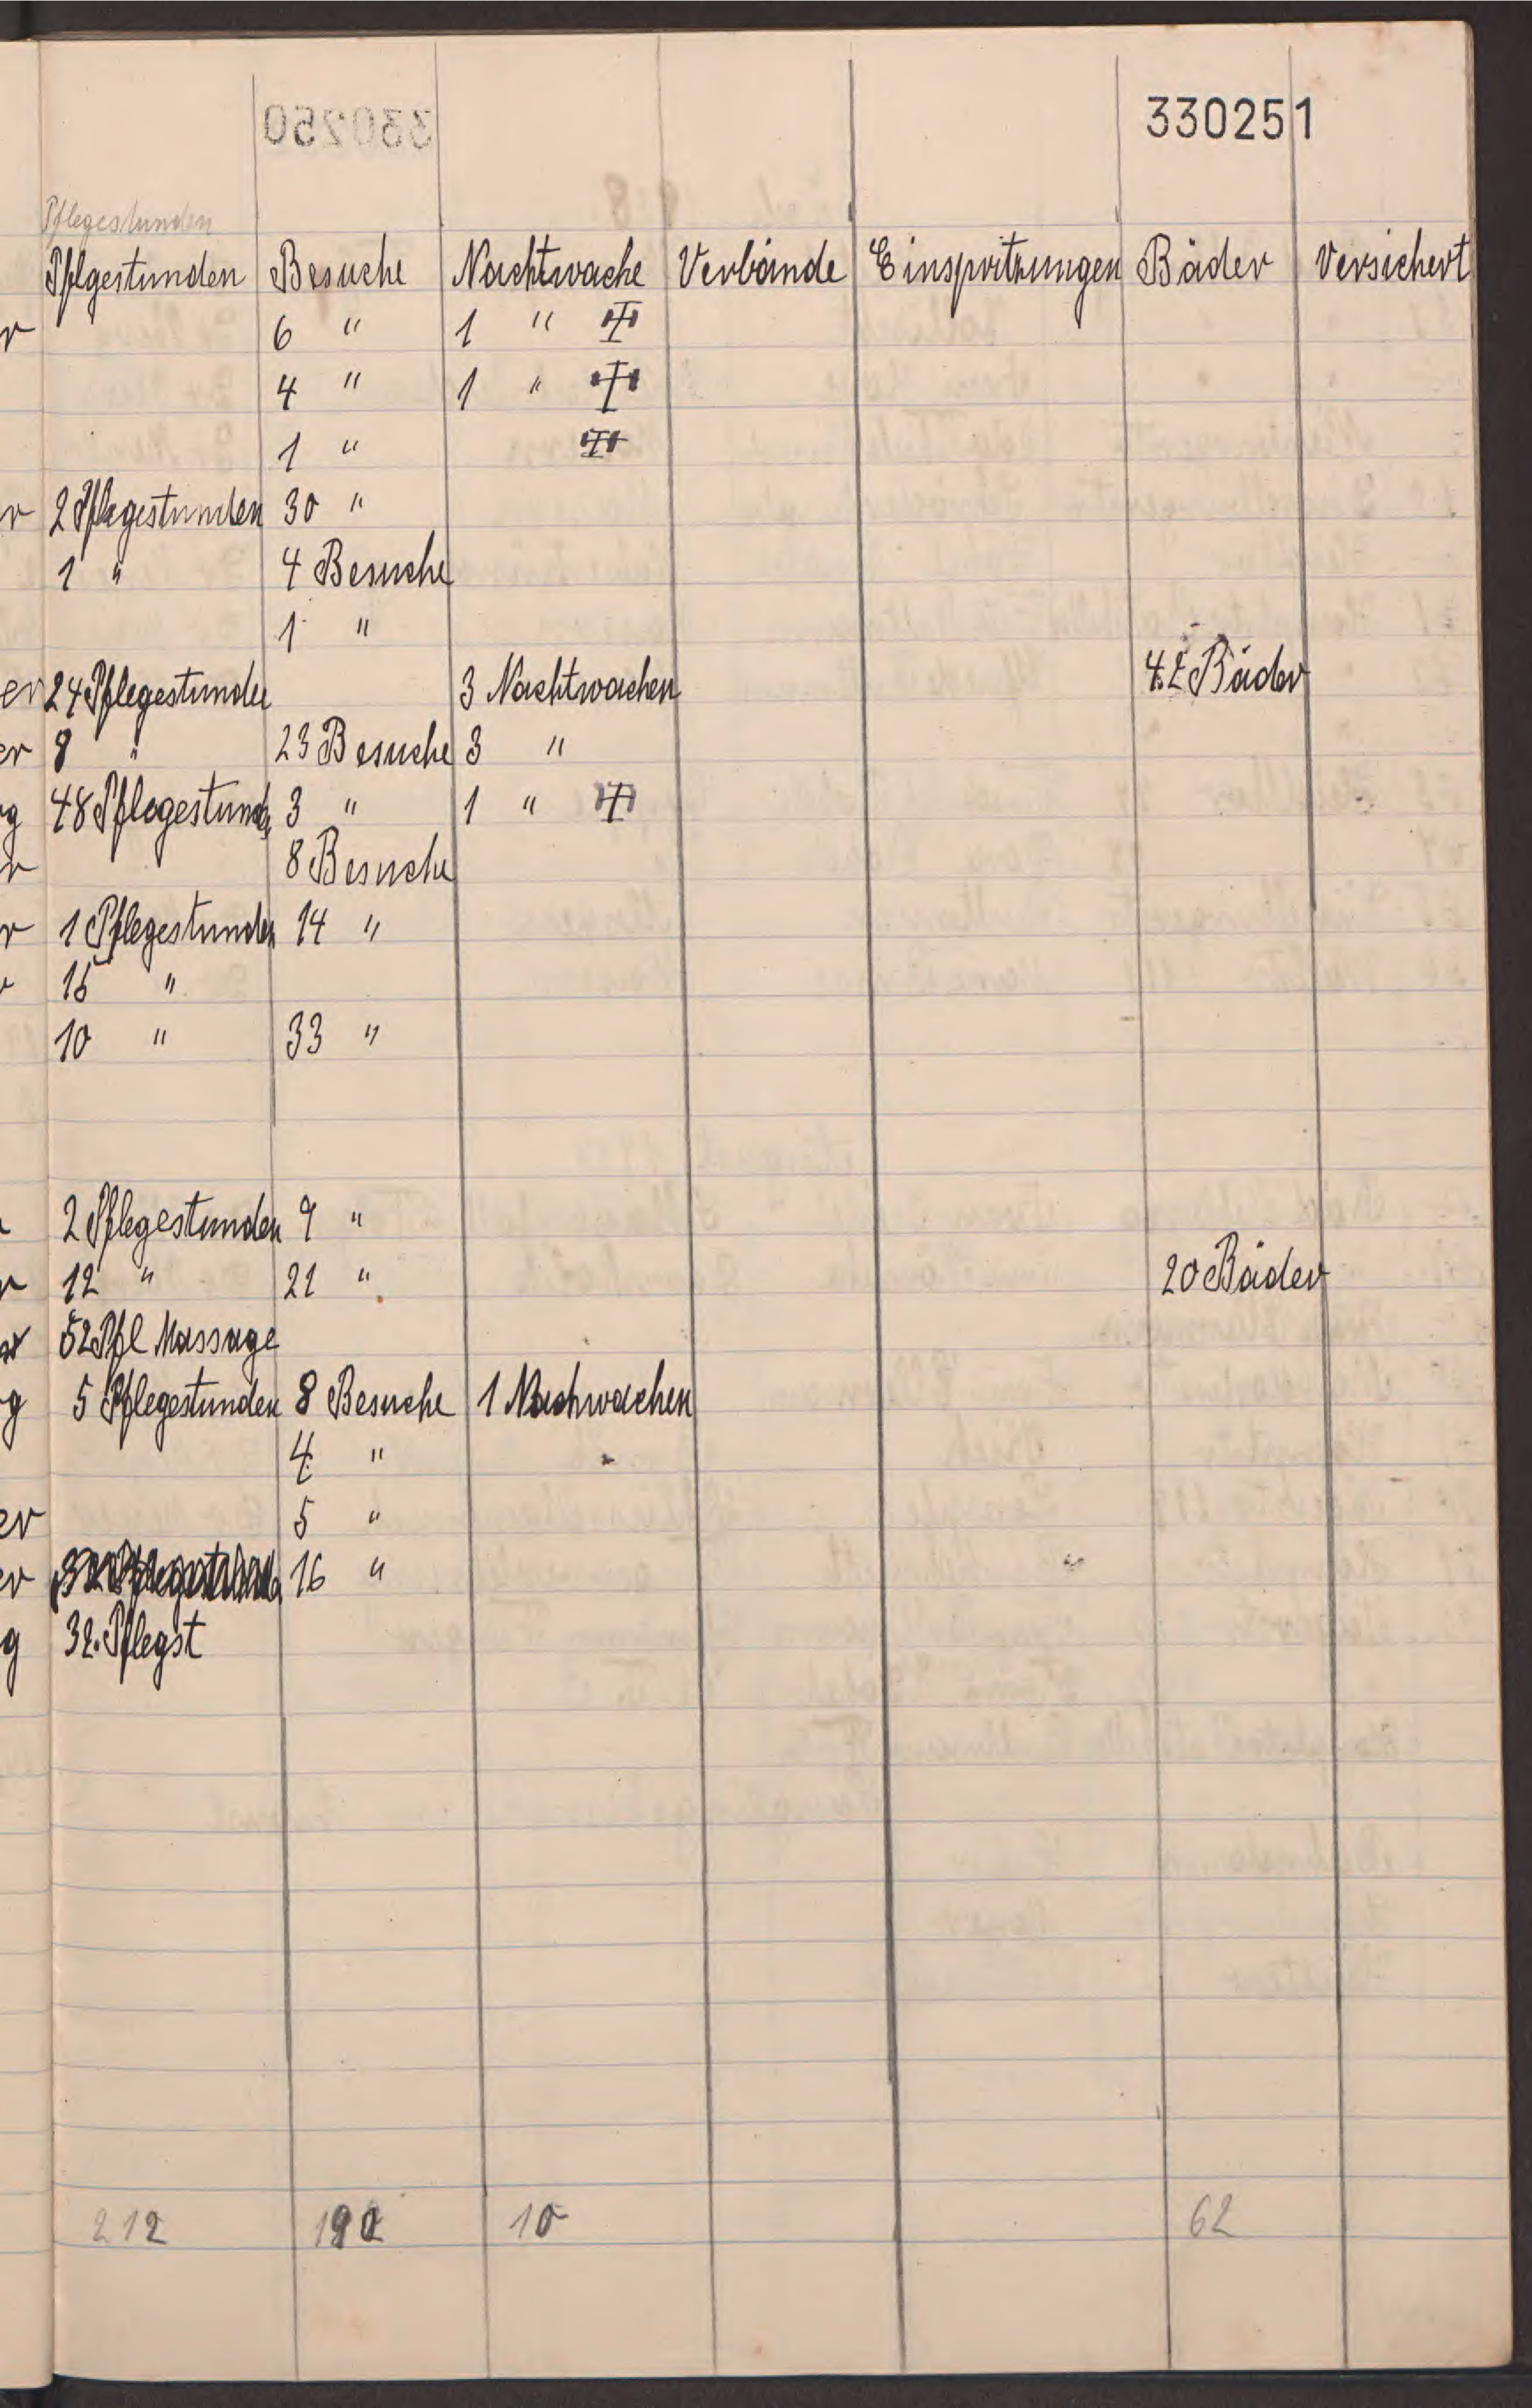 330251
Pflegestunden
Pflgestunden Besuche Nachtwache Verbände Einspritzungen Bäder Versichert
r 6 " 1 "
4 " 1 "
1 "
r 2 Pflegestunden 30 "
1 " 4 Besuche
1 "
er 24 Pflegestunden 3 Nachtwachen 42 Bäder
er 8 " 23 Besuche 3 "
g 48 Pflegestund 3 " 1 "
r 8 Besuche
r 1 Pflegestunden 14 "
15 "
10 " 33 "
2 Pflegestunden 9 "
r 12 " 21 " 20 Bäder
52 Pfl Massage
g 5 Pflegestunden 8 Besuche 1 Nachwachen
4 "
er 5 "
er 16 "
g 32. Pflegst
212 10 62